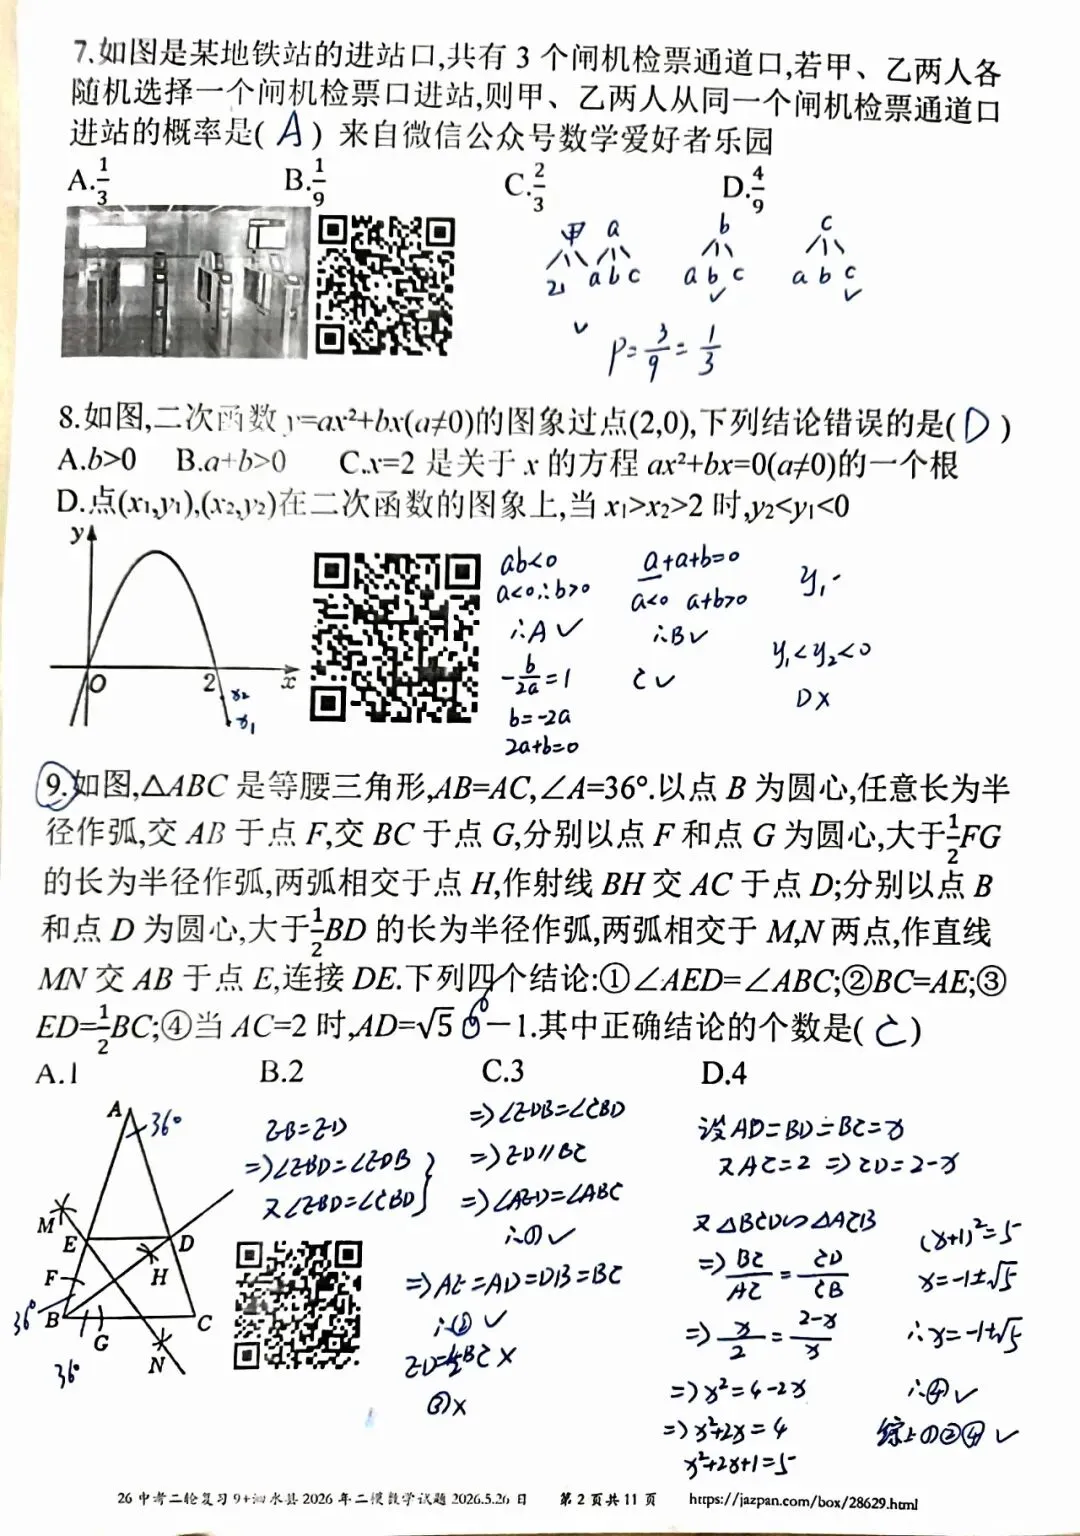 7.如图是某地铁站的进站口,共有 3 个闸机检票通道口,若甲、乙两人各
随机选择一个闸机检票口进站,则甲、乙两人从同一个闸机检票通道口
进站的概率是( A ) 来自微信公众号数学爱好者乐园
A.1/3 B.1/9 C.2/3 D.4/9
甲 a b c
乙 a b c a b c a b c
✓ ✓ ✓
P=3/9=1/3
8.如图,二次函数 y=ax²+bx(a≠0)的图象过点(2,0),下列结论错误的是( D )
A.b>0 B.a+b>0 C.x=2 是关于 x 的方程 ax²+bx=0(a≠0)的一个根
D.点(x₁,y₁),(x₂,y₂)在二次函数的图象上,当 x₁>x₂>2 时,y₂<y₁<0
y
O 2 x
x₂
x₁
ab<0
a<0∴b>0
∴A ✓
-b/2a=1
b=-2a
2a+b=0
a+a+b=0
a<0 a+b>0
∴B✓
C ✓
y₁
y₁<y₂<0
D X
9.如图,△ABC 是等腰三角形,AB=AC,∠A=36°.以点 B 为圆心,任意长为半
径作弧,交 AB 于点 F,交 BC 于点 G,分别以点 F 和点 G 为圆心,大于1/2FG
的长为半径作弧,两弧相交于点 H,作射线 BH 交 AC 于点 D;分别以点 B
和点 D 为圆心,大于1/2BD 的长为半径作弧,两弧相交于 M,N 两点,作直线
MN 交 AB 于点 E,连接 DE.下列四个结论:①∠AED=∠ABC;②BC=AE;③
ED=1/2BC;④当 AC=2 时,AD=√5 －1.其中正确结论的个数是( C )
A.1 B.2 C.3 D.4
A 36°
M
E D
F H
36° B G C
36° N
EB=ED
=>∠EBD=∠EDB
又∠EBD=∠CBD
=>∠EDB=∠CBD
=>ED//BC
=>∠AED=∠ABC
∴①✓
=>AE=AD=DB=BC
∴② ✓
ED=1/2BC X
③X
设AD=BD=BC=x
又AC=2 =>CD=2-x
又△BCD∽△ACB
=>BC/AC=CD/CB
=>x/2=2-x/x
=>x²=4-2x
=>x²+2x=4
x²+2x+1=5
(x+1)²=5
x=-1±√5
∴x=-1+√5
∴④✓
综上①②④ ✓
26 中考二轮复习 9+泗水县 2026 年二模数学试题 2026.5.26 日 第 2 页共 11 页 https://jazpan.com/box/28629.html